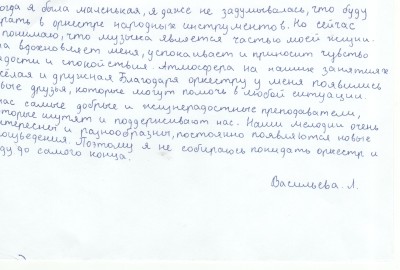 огда я была маленькая, я даже не задумывалась, что буду
рать в оркестре народных инструментов. Но сейчас
понимаю, что музыка является частью моей жизни.
на вдохновляет меня, успокаивает и приносит чувство
адости и спокойствия. Атмосфера на наших занятиях
сёлая и дружная. Благодаря оркестру у меня появились
вые друзья, которые могут помочь в любой ситуации.
нас самые добрые и жизнерадостные преподаватели,
торые шутят и поддерживают нас. Наши мелодии очень
нтересны и разнообразны, постоянно появляются новые
оизведения. Поэтому я не собираюсь покидать оркестр и
ду до самого конца.
Васильева Л.